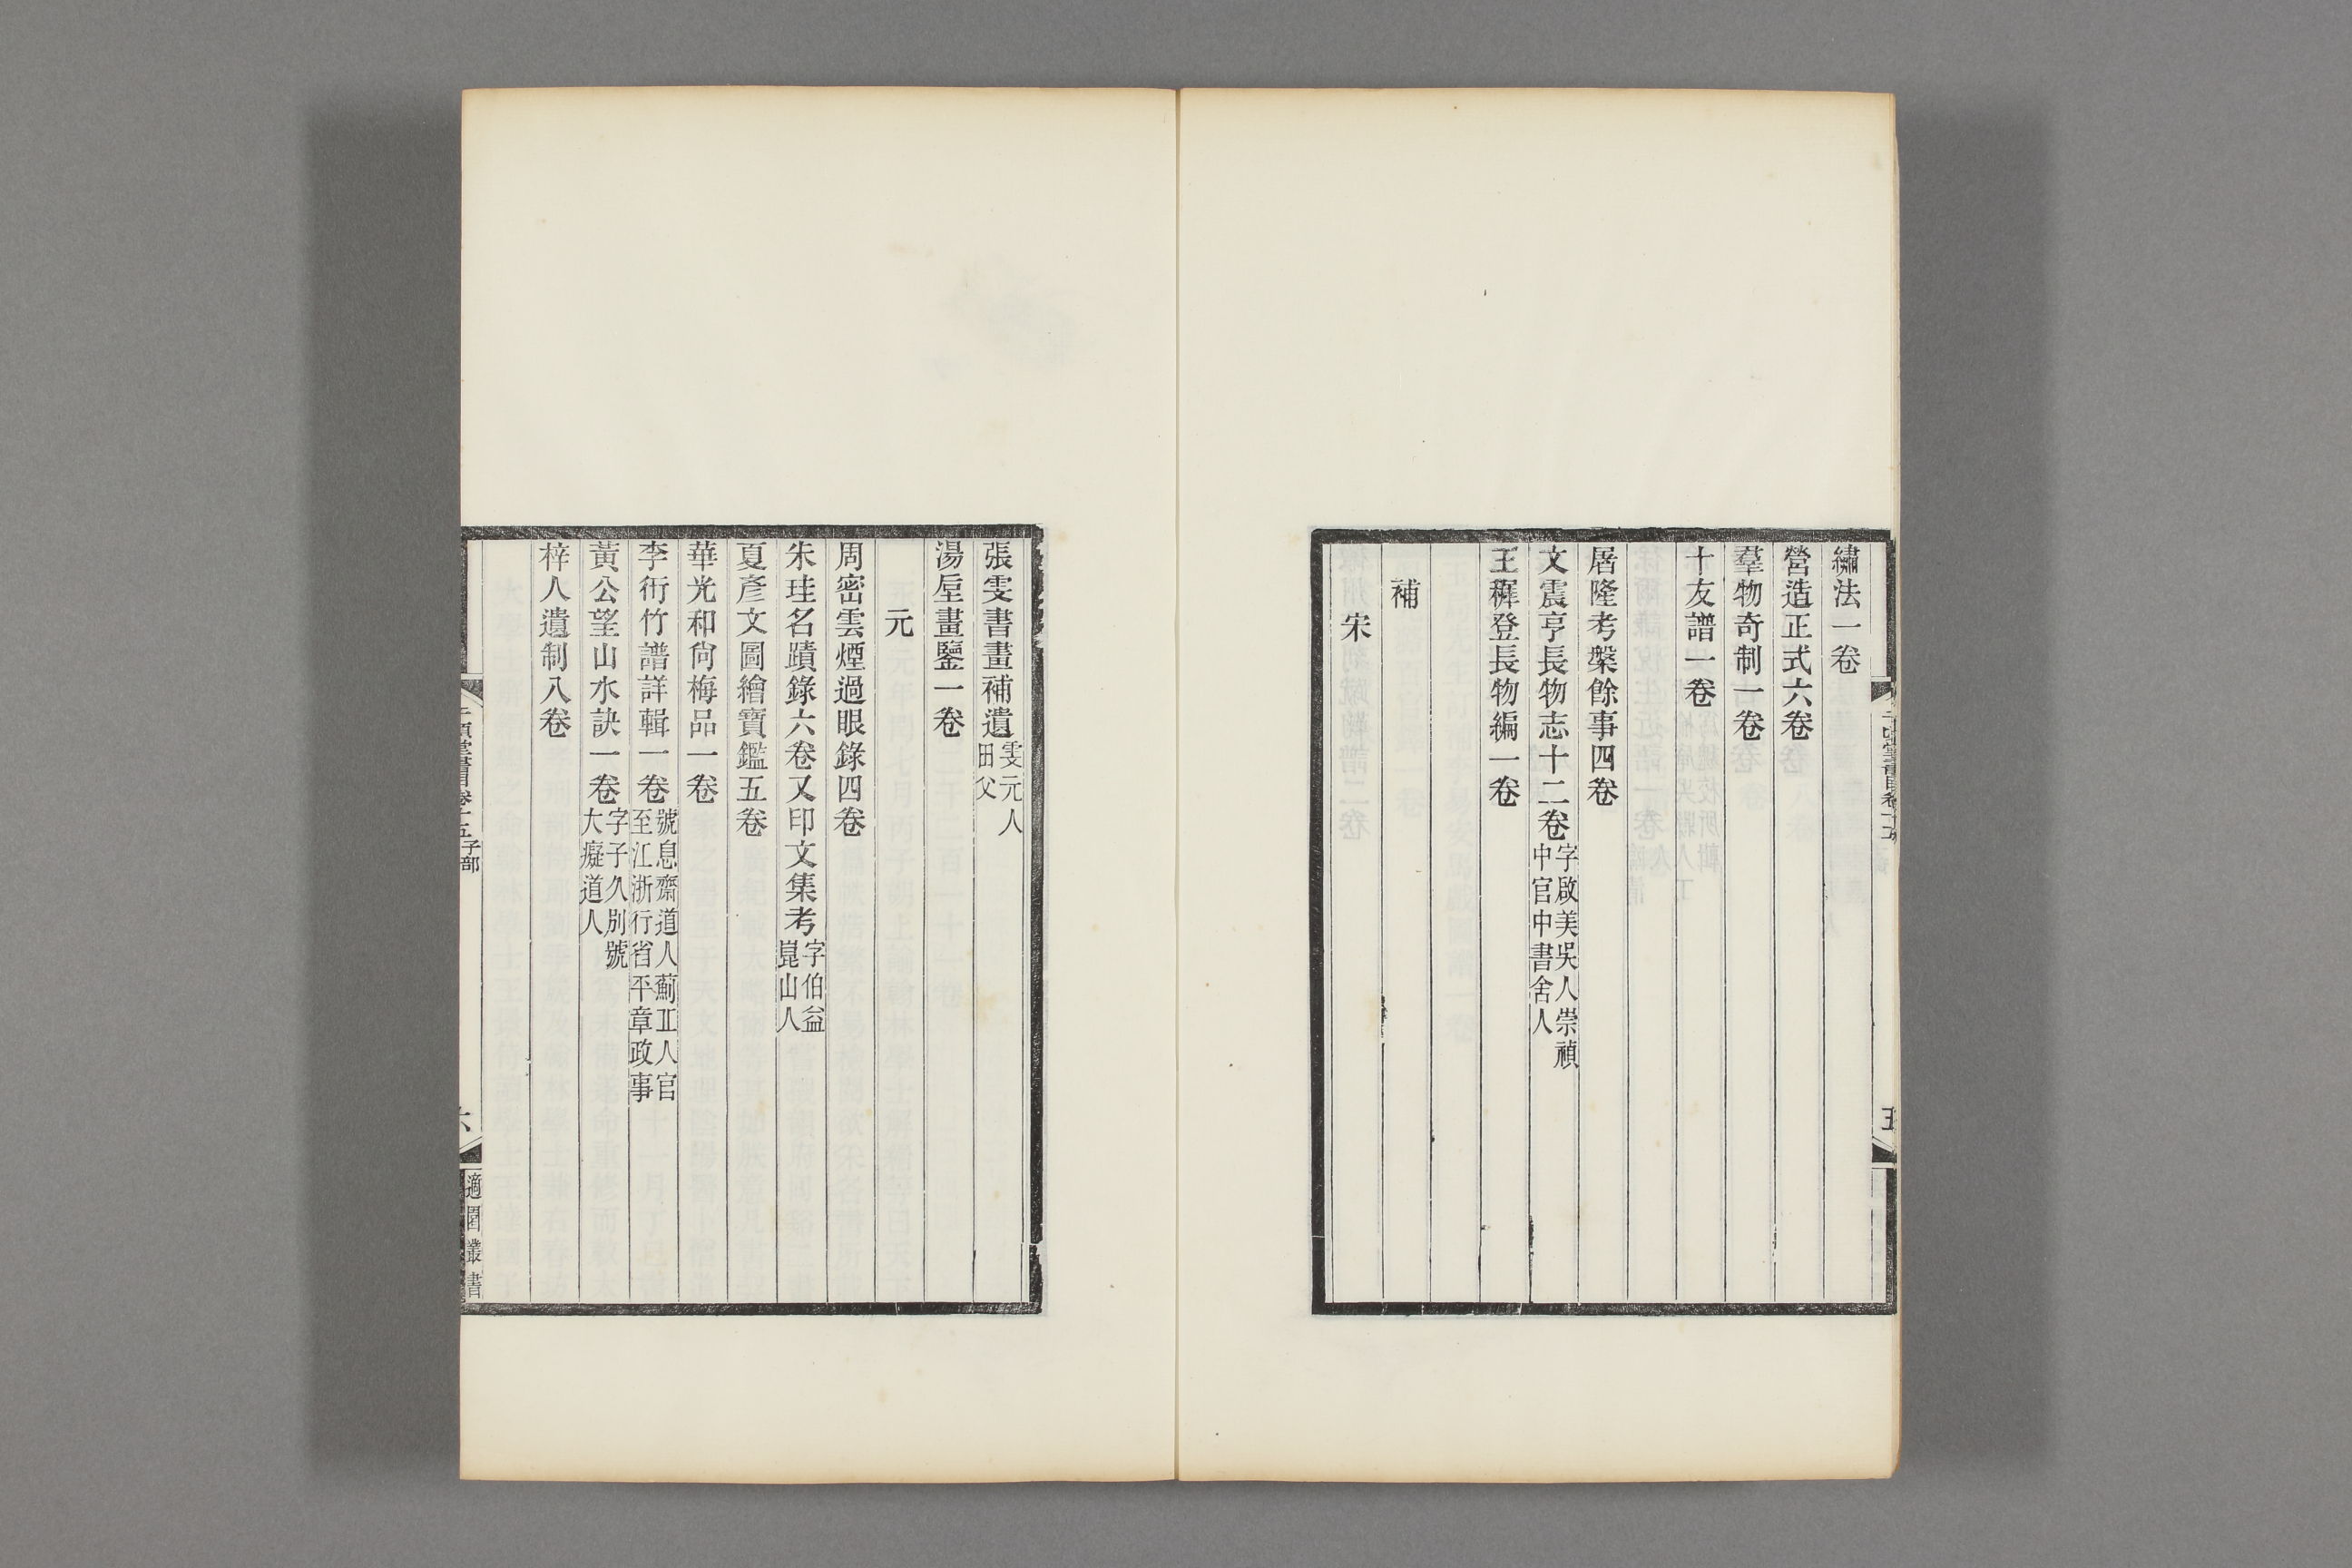 繡法一卷
營造正式六卷
羣物奇制一卷
十友譜一卷
屠隆考槃餘事四卷
文震亨長物志十二卷字啟美吳人崇禎中官中書舍人
王穉登長物編一卷
補
宋
張雯書畫補遺雯元人田父
湯垕畫鑒一卷
元
周密雲煙過眼錄四卷
朱珪名蹟錄六卷又印文集考字伯益崑山人
夏彥文圖繪寶鑑五卷
華光和尙梅品一卷
李衎竹譜詳輯一卷號息齋道人薊丘人官至江浙行省平章政事
黃公望山水訣一卷字子久別號大癡道人
梓人遺制八卷
千頃堂書目卷十五子部
六
適園叢書